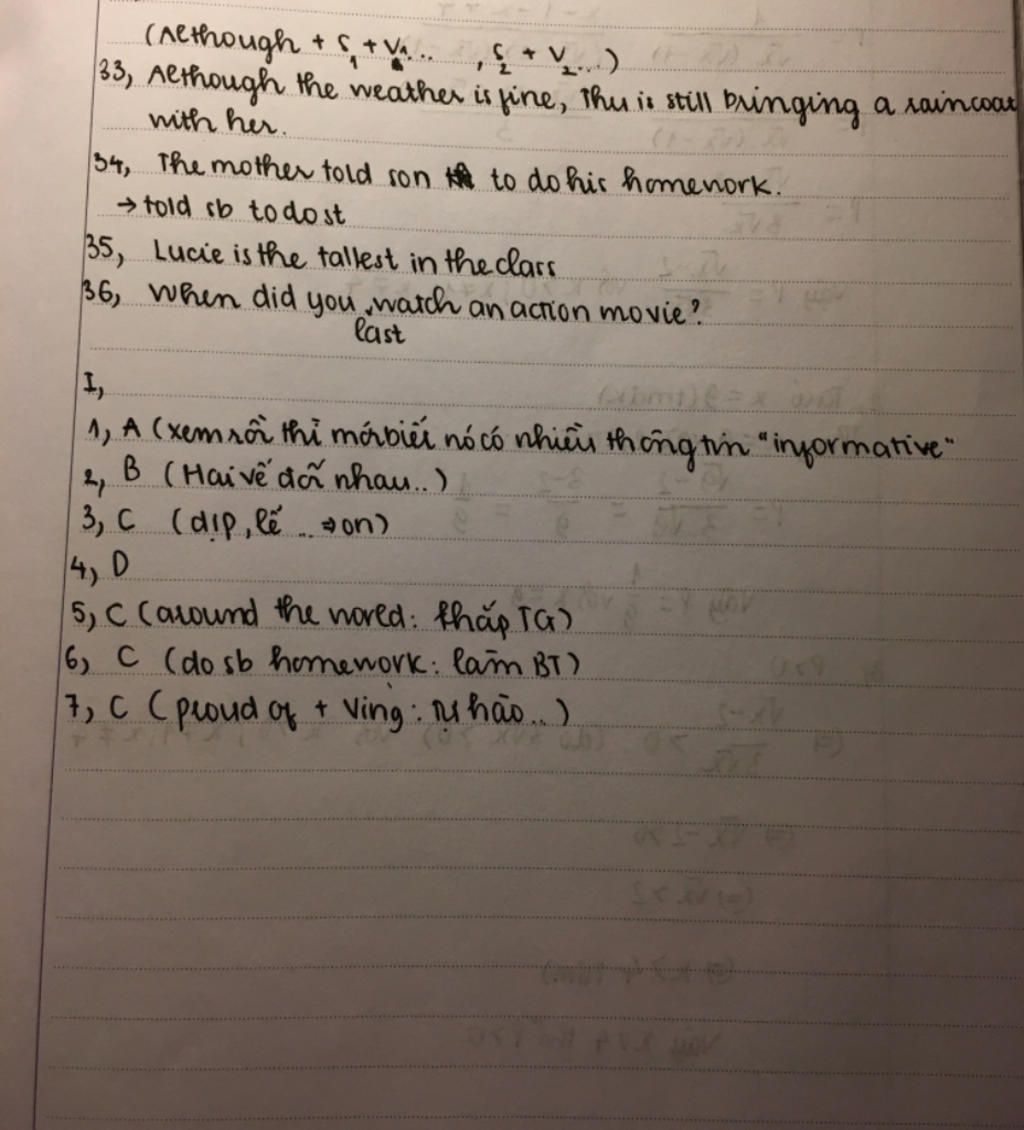 (Although + S1 + V1... , S2 + V2...)
33, Although the weather is fine, Thu is still bringing a raincoat
with her.
34, The mother told son to do his homework.
→ told sb to do st
35, Lucie is the tallest in the class
36, When did you watch an action movie?
last
I,
1, A (xem rồi thì mới biết nó có nhiều thông tin "informative"
2, B (Hai vế đối nhau..)
3, C (dịp, lễ ... ⇒ on)
4, D
5, C (around the world: khắp TG)
6, C (do sb homework: làm BT)
7, C (proud of + Ving: tự hào..)